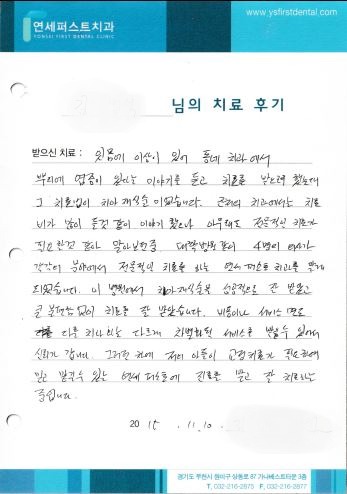 연세퍼스트치과
YONSEI FIRST DENTAL CLINIC
www.ysfirstdental.com
님의 치료 후기
받으신 치료 : 잇몸에 이상이 있어 동네 치과에서
뿌리에 염증이 있다는 이야기를 듣고 치료를 받으려 했는데
그 치료법이 치아 재식술 이었습니다. 근처의 치과에서는 치료
비가 많이 들것 같이 이야기 했으나 아무래도 전문적인 치료가
필요한것 같아 알아보던중 대학병원같이 4명의 의사가
각각의 분야에서 전문적인 치료를 하는 연세 퍼스트 치과를 알게
되었습니다. 이 병원에서 치아재식술을 성공적으로 잘 받았고
큰 불편함 없이 치료를 잘 받았습니다. 비용이나 서비스 면도
다른 치과와는 다르게 차별화된 서비스를 받을수 있어서
신뢰가 갑니다. 그러던 차에 저의 아들이 교정치료가 필요하여
믿고 맡길수 있는 연세 퍼스트에 진료를 받고 잘 치료하는
중입니다.
20 15 . 11. 10 .
경기도 부천시 원미구 상동로 87 가나베스트타운 3층
T. 032-216-2875 F. 032-216-2877